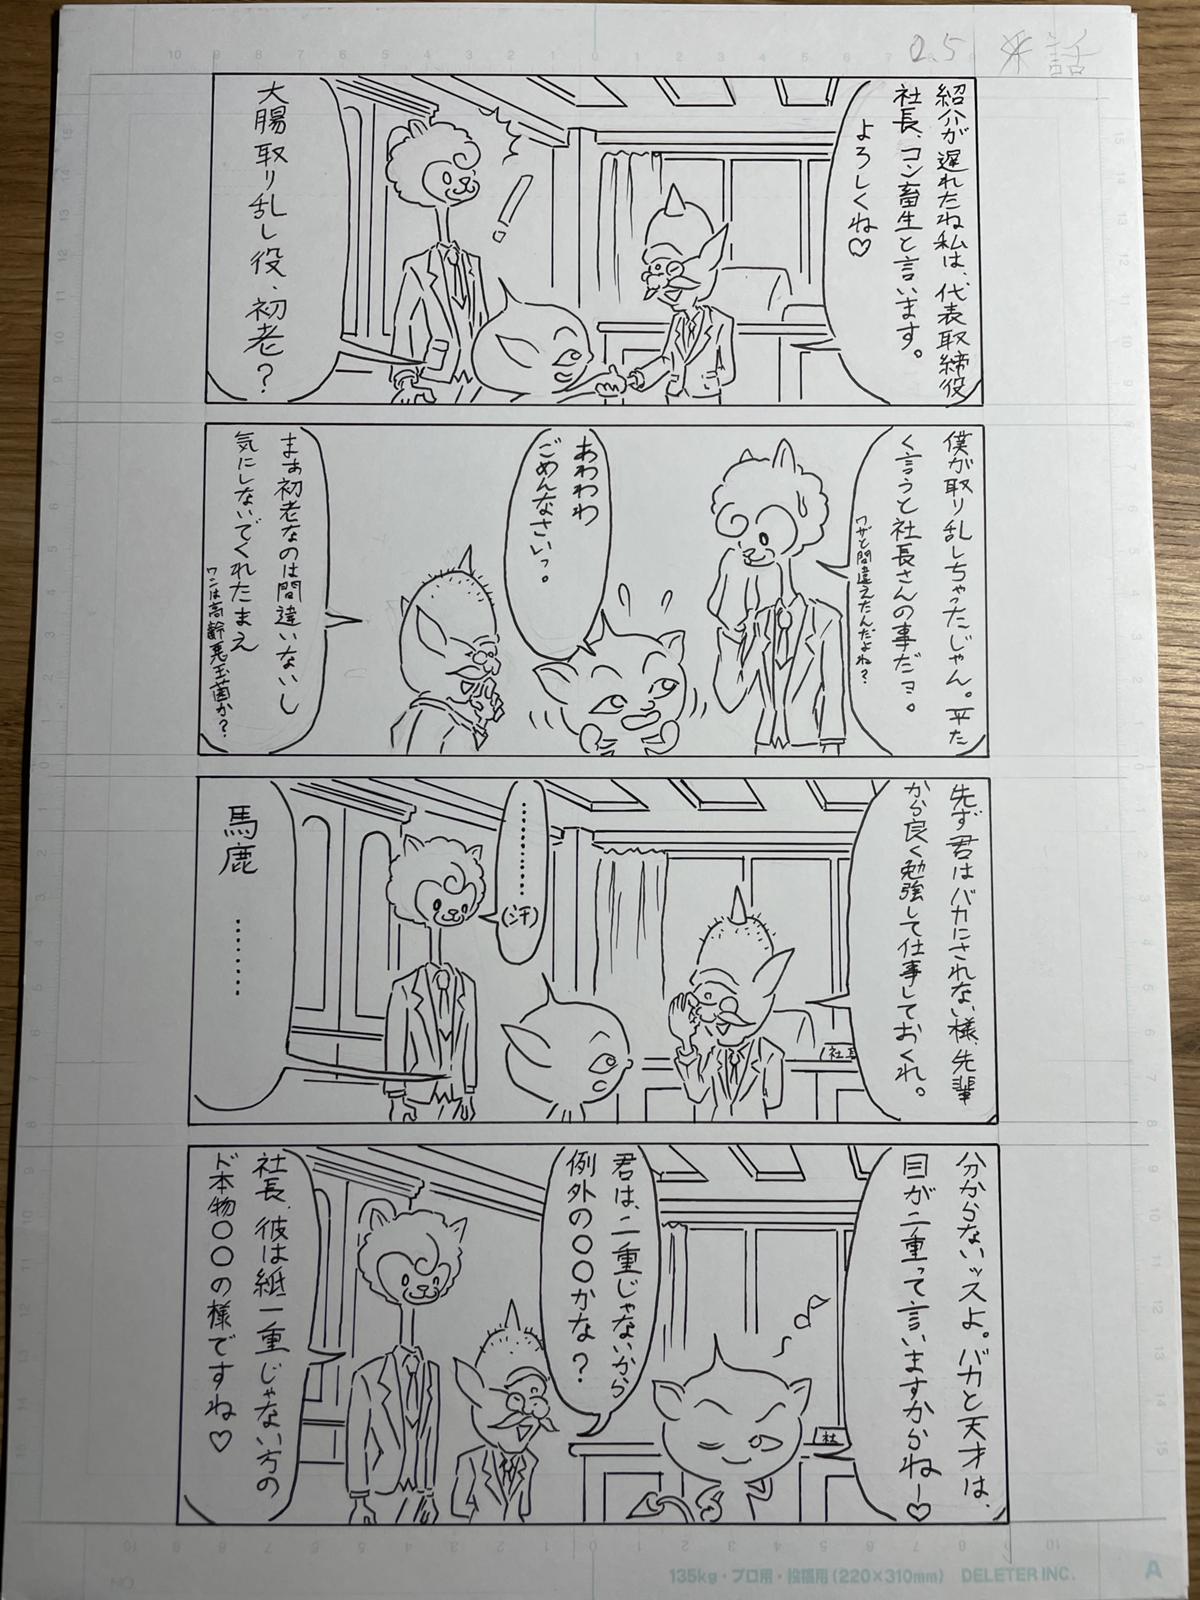 25 米話
紹介が遅れたね私は、代表取締役
社長、コン畜生と言います。
よろしくね♡
大腸取り乱し役、初老？
僕が取り乱しちゃったじゃん。平た
く言うと社長さんの事だヨ。
ワザと間違えたんだよね？
あわわわ
ごめんなさいっ。
まぁ初老なのは間違いないし
気にしないでくれたまえ
ワシは高齢悪玉菌か？
先ず君はバカにされない様、先輩
から良く勉強して仕事しておくれ。
…………
(汗)
馬鹿………
社長
分からないッスよ。バカと天才は、
目が二重って言いますからねー♡
君は、二重じゃないから
例外の〇〇かな？
社長、彼は紙一重じゃない方の
ド本物〇〇の様ですね♡
社
135kg・プロ用・投稿用(220×310mm) DELETER INC. A